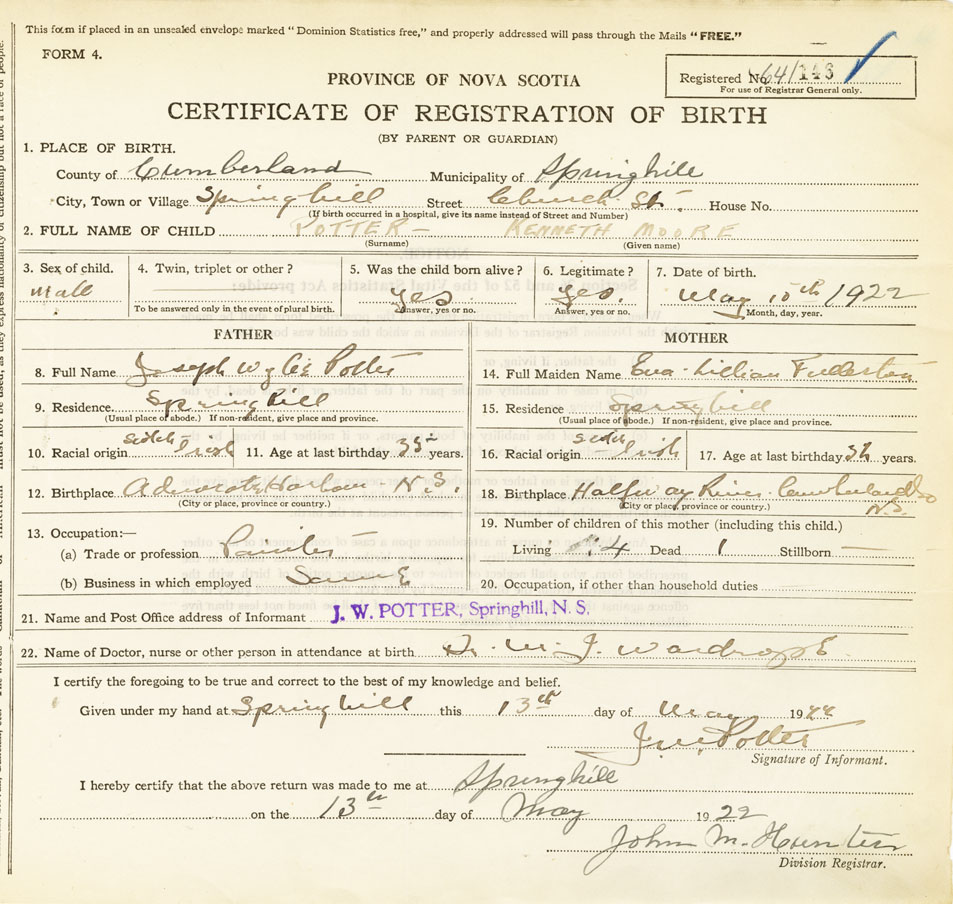 This form if placed in an unsealed envelope marked "Dominion Statistics free," and properly addressed will pass through the Mails "FREE."
FORM 4.
PROVINCE OF NOVA SCOTIA
Registered No. 64/143
For use of Registrar General only.
CERTIFICATE OF REGISTRATION OF BIRTH
(BY PARENT OR GUARDIAN)
1. PLACE OF BIRTH.
County of Cumberland Municipality of Springhill
City, Town or Village Springhill Street Church St. House No.
(If birth occurred in a hospital, give its name instead of Street and Number)
2. FULL NAME OF CHILD POTTER - KENNETH MOORE
(Surname) (Given name)
3. Sex of child. 4. Twin, triplet or other? 5. Was the child born alive? 6. Legitimate? 7. Date of birth.
Mall yes. yes. May 10th 1922
To be answered only in the event of plural birth. Answer, yes or no. Answer, yes or no. Month, day, year.
FATHER MOTHER
8. Full Name Joseph Wylie Potter 14. Full Maiden Name Eva Lillian Fullerton
9. Residence Springhill 15. Residence Springhill
(Usual place of abode.) If non-resident, give place and province. (Usual place of abode.) If non-resident, give place and province.
10. Racial origin Scotch Irish 11. Age at last birthday 35 years. 16. Racial origin Scotch Irish 17. Age at last birthday years.
12. Birthplace Advocate Harbour N.S. 18. Birthplace Halfway River Cumberland Co N.S.
(City or place, province or country.) (City or place, province or country.)
13. Occupation:— 19. Number of children of this mother (including this child.)
(a) Trade or profession Painter Living 4 Dead 1 Stillborn —
(b) Business in which employed Same 20. Occupation, if other than household duties
21. Name and Post Office address of Informant J. W. POTTER, Springhill, N. S.
22. Name of Doctor, nurse or other person in attendance at birth Dr. M. J. Wardrope.
I certify the foregoing to be true and correct to the best of my knowledge and belief.
Given under my hand at Springhill this 13th day of May 1922
J. W. Potter
Signature of Informant.
I hereby certify that the above return was made to me at Springhill
on the 13th day of May 1922
John M. Hunter
Division Registrar.